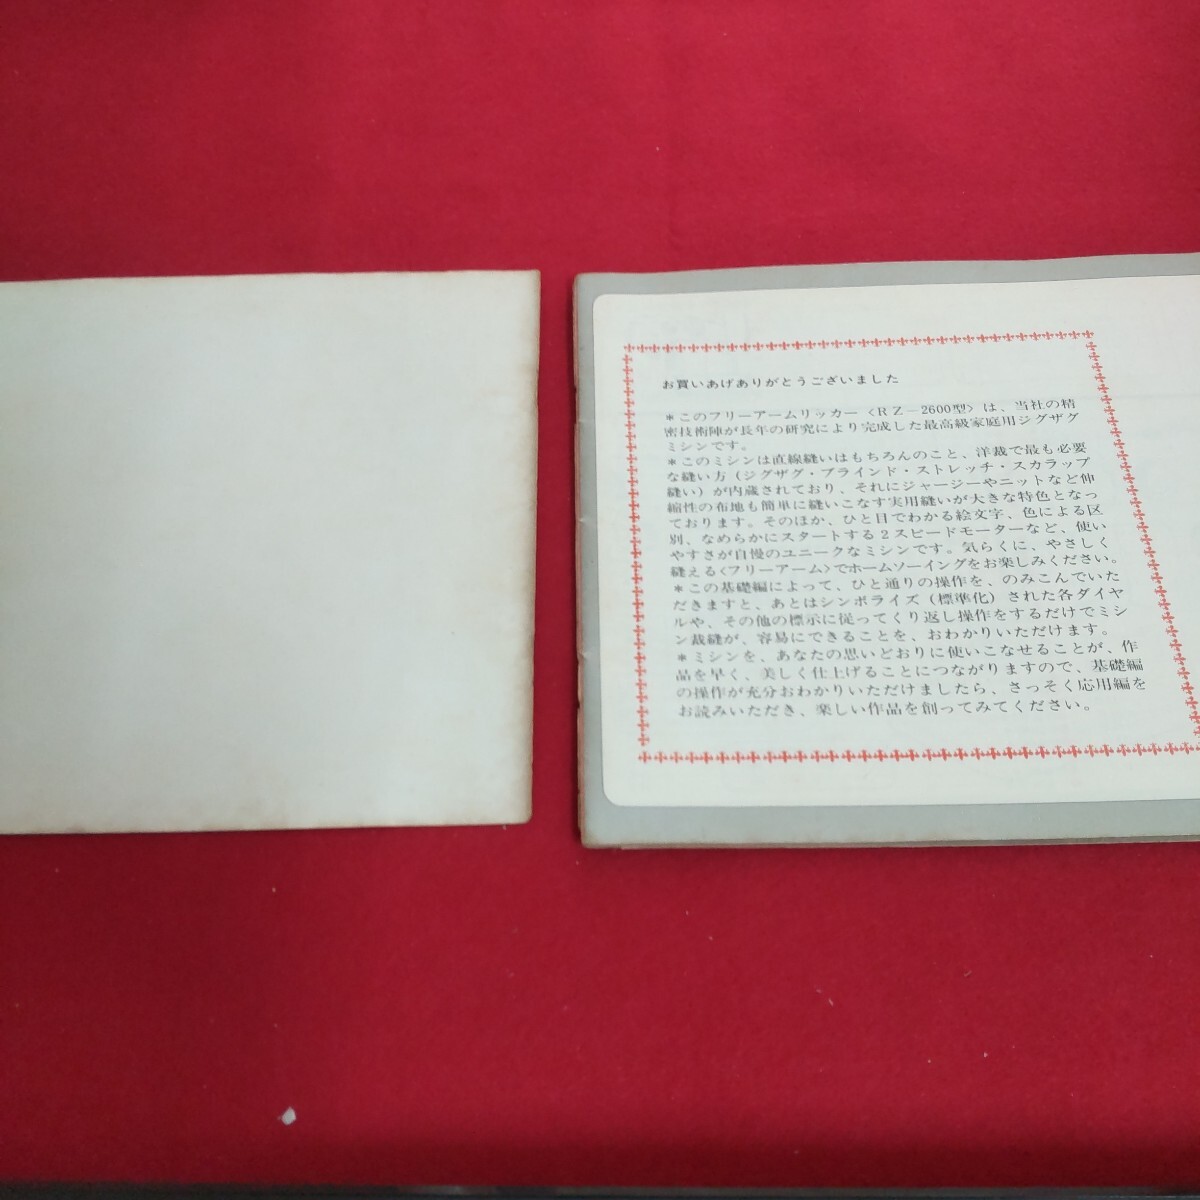 お買いあげありがとうございました
＊このフリーアームリッカー〈RZ－2600型〉は、当社の精
密技術陣が長年の研究により完成した最高級家庭用ジグザグ
ミシンです。
＊このミシンは直線縫いはもちろんのこと、洋裁で最も必要
な縫い方（ジグザグ・ブラインド・ストレッチ・スカラップ
縫い）が内蔵されており、それにジャージーやニットなど伸
縮性の布地も簡単に縫いこなす実用縫いが大きな特色となっ
ております。そのほか、ひと目でわかる絵文字、色による区
別、なめらかにスタートする2スピードモーターなど、使い
やすさが自慢のユニークなミシンです。気らくに、やさしく
縫える〈フリーアーム〉でホームソーイングをお楽しみください。
＊この基礎編によって、ひと通りの操作を、のみこんでいた
だきますと、あとはシンボライズ（標準化）された各ダイヤ
ルや、その他の標示に従ってくり返し操作をするだけでミシ
ン裁縫が、容易にできることを、おわかりいただけます。
＊ミシンを、あなたの思いどおりに使いこなせることが、作
品を早く、美しく仕上げることにつながりますので、基礎編
の操作が充分おわかりいただけましたら、さっそく応用編を
お読みいただき、楽しい作品を創ってみてください。